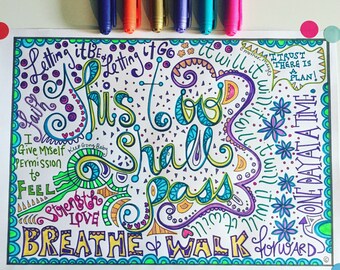 Letting it Be, Letting it Go
it will, it will
I TRUST
THERE IS
A PLAN!
This too
Shall
Pass
I
Give Myself
Permission
to
FEEL
Keep Going Baby
STRENGTH
LOVE
ONE DAY AT A TIME!
BREATHE & WALK forward
©